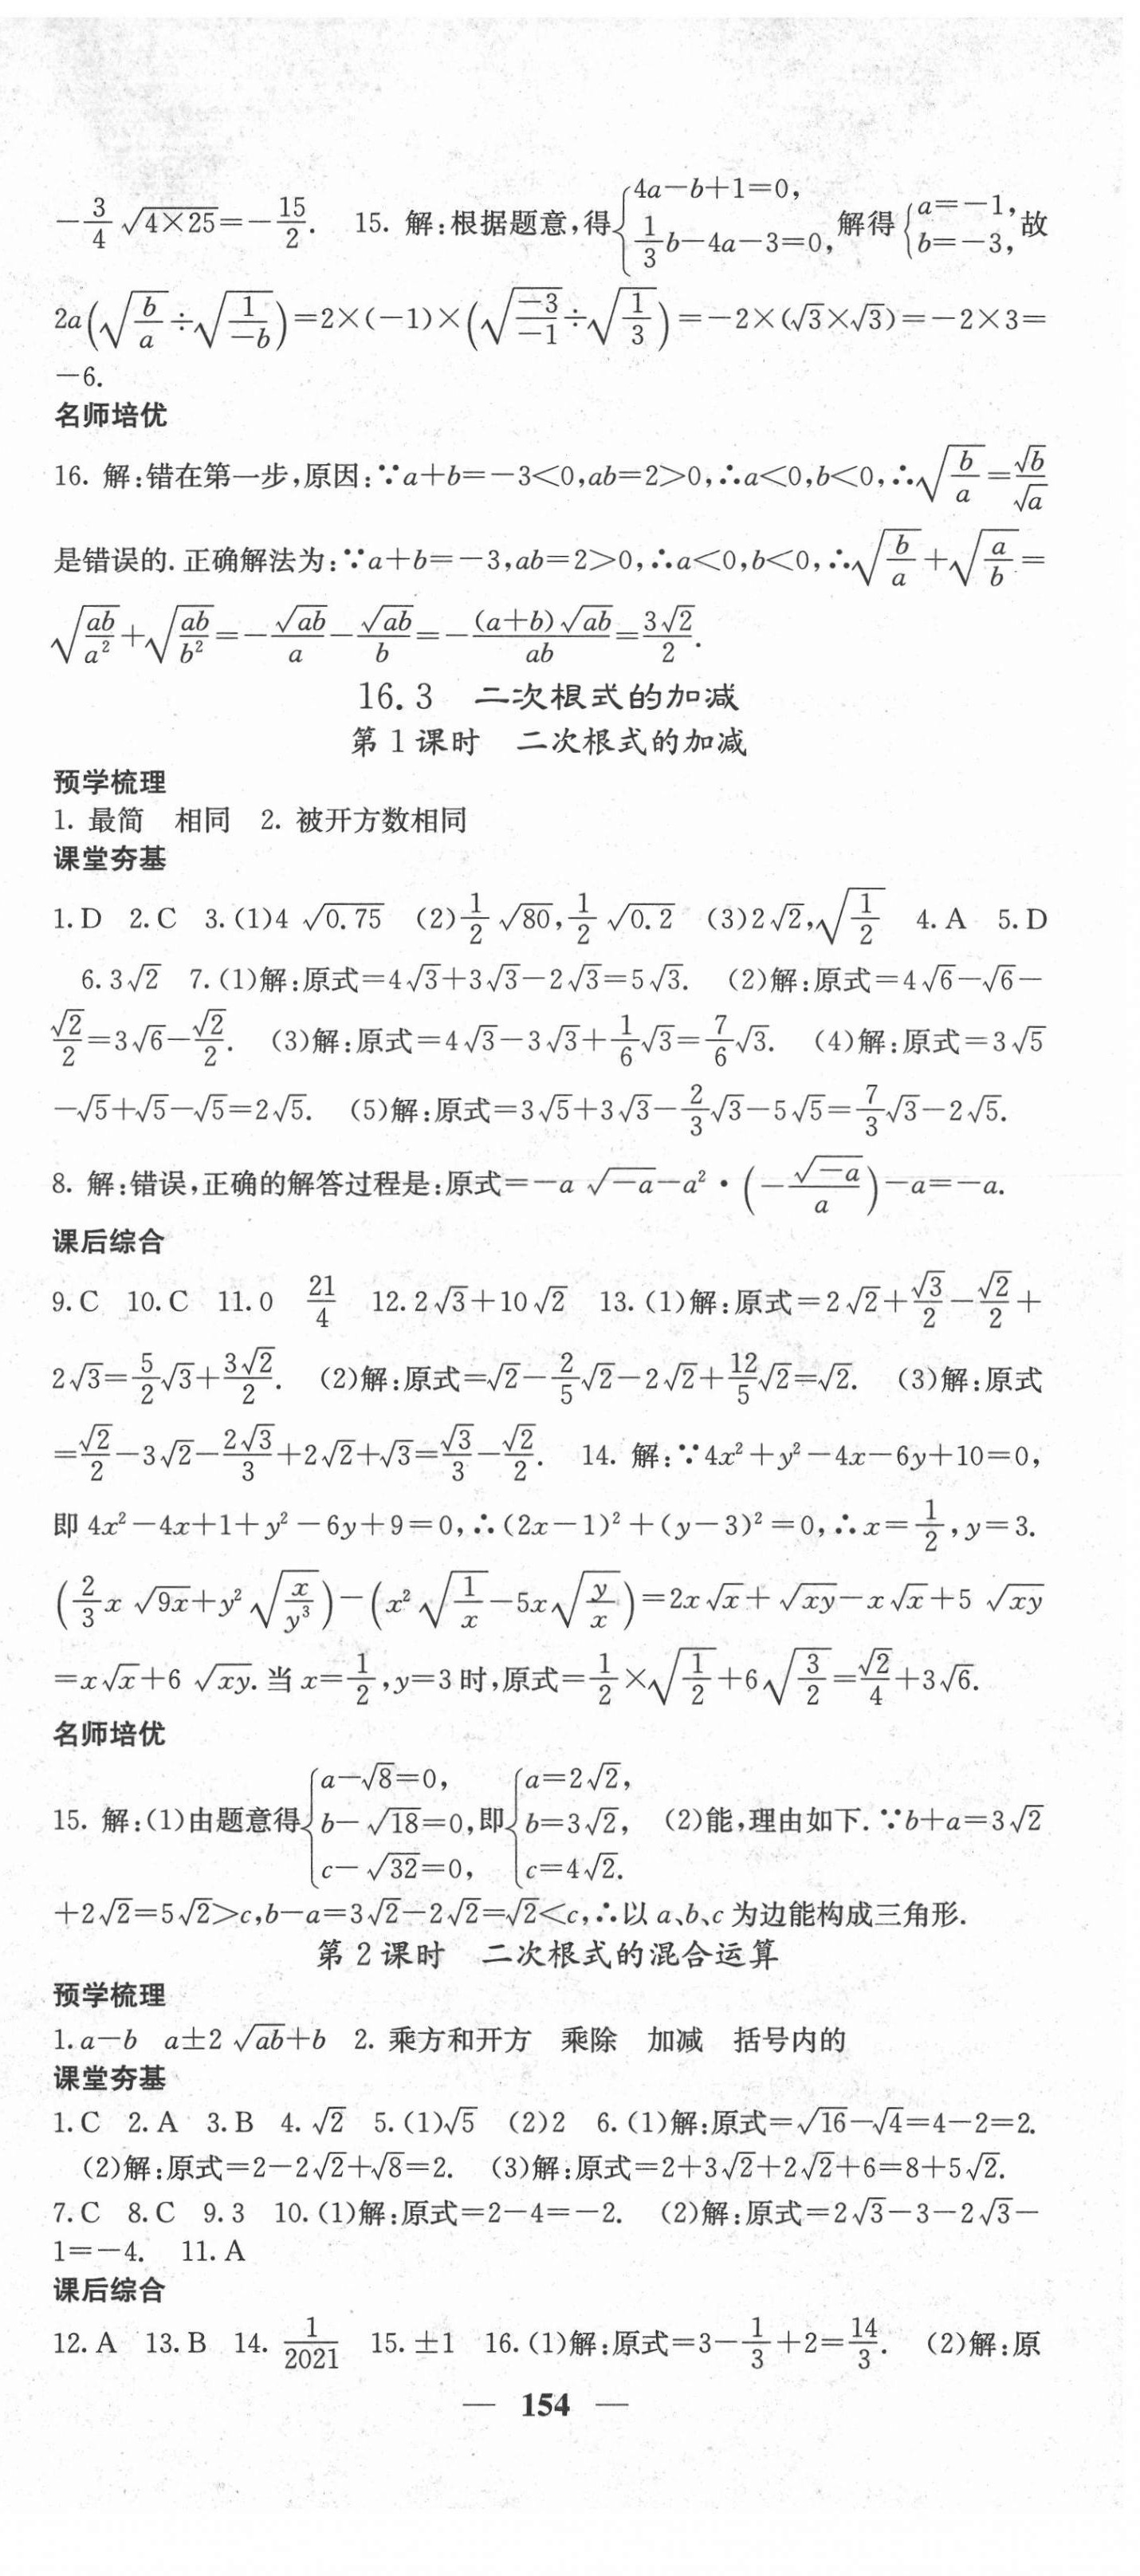 $-\frac{3}{4}\sqrt{4×25}=-\frac{15}{2}$. 15. 解:根据题意,得$\begin{cases}4a-b+1=0,\\ \frac{1}{3}b-4a-3=0,\end{cases}$解得$\begin{cases}a=-1,\\ b=-3,\end{cases}$故
$2a\left(\sqrt{\frac{b}{a}}÷\sqrt{\frac{1}{-b}}\right)=2×(-1)×\left(\sqrt{\frac{-3}{-1}}÷\sqrt{\frac{1}{3}}\right)=-2×(\sqrt{3}×\sqrt{3})=-2×3=$
$-6$.
名师培优
16. 解:错在第一步,原因:∵$a+b=-3<0,ab=2>0$,∴$a<0,b<0$,∴$\sqrt{\frac{b}{a}}=\frac{\sqrt{b}}{\sqrt{a}}$
是错误的.正确解法为:∵$a+b=-3,ab=2>0$,∴$a<0,b<0$,∴$\sqrt{\frac{b}{a}}+\sqrt{\frac{a}{b}}=$
$\sqrt{\frac{ab}{a^2}}+\sqrt{\frac{ab}{b^2}}=-\frac{\sqrt{ab}}{a}-\frac{\sqrt{ab}}{b}=-\frac{(a+b)\sqrt{ab}}{ab}=\frac{3\sqrt{2}}{2}$.
16.3 二次根式的加减
第1课时 二次根式的加减
预学梳理
1. 最简 相同 2. 被开方数相同
课堂夯基
1.D 2.C 3.(1)$4\sqrt{0.75}$ (2)$\frac{1}{2}\sqrt{80},\frac{1}{2}\sqrt{0.2}$ (3)$2\sqrt{2},\sqrt{\frac{1}{2}}$ 4.A 5.D
6.$3\sqrt{2}$ 7.(1)解:原式$=4\sqrt{3}+3\sqrt{3}-2\sqrt{3}=5\sqrt{3}$. (2)解:原式$=4\sqrt{6}-\sqrt{6}-$
$\frac{\sqrt{2}}{2}=3\sqrt{6}-\frac{\sqrt{2}}{2}$. (3)解:原式$=4\sqrt{3}-3\sqrt{3}+\frac{1}{6}\sqrt{3}=\frac{7}{6}\sqrt{3}$. (4)解:原式$=3\sqrt{5}$
$-\sqrt{5}+\sqrt{5}-\sqrt{5}=2\sqrt{5}$. (5)解:原式$=3\sqrt{5}+3\sqrt{3}-\frac{2}{3}\sqrt{3}-5\sqrt{5}=\frac{7}{3}\sqrt{3}-2\sqrt{5}$.
8. 解:错误,正确的解答过程是:原式$=-a\sqrt{-a}-a^2·\left(-\frac{\sqrt{-a}}{a}\right)-a=-a$.
课后综合
9.C 10.C 11.0 $\frac{21}{4}$ 12.$2\sqrt{3}+10\sqrt{2}$ 13.(1)解:原式$=2\sqrt{2}+\frac{\sqrt{3}}{2}-\frac{\sqrt{2}}{2}+$
$2\sqrt{3}=\frac{5}{2}\sqrt{3}+\frac{3\sqrt{2}}{2}$. (2)解:原式$=\sqrt{2}-\frac{2}{5}\sqrt{2}-2\sqrt{2}+\frac{12}{5}\sqrt{2}=\sqrt{2}$. (3)解:原式
$=\frac{\sqrt{2}}{2}-3\sqrt{2}-\frac{2\sqrt{3}}{3}+2\sqrt{2}+\sqrt{3}=\frac{\sqrt{3}}{3}-\frac{\sqrt{2}}{2}$. 14. 解:∵$4x^2+y^2-4x-6y+10=0$,
即$4x^2-4x+1+y^2-6y+9=0$,∴$(2x-1)^2+(y-3)^2=0$,∴$x=\frac{1}{2},y=3$.
$\left(\frac{2}{3}x\sqrt{9x}+y^2\sqrt{\frac{x}{y^3}}\right)-\left(x^2\sqrt{\frac{1}{x}}-5x\sqrt{\frac{y}{x}}\right)=2x\sqrt{x}+\sqrt{xy}-x\sqrt{x}+5\sqrt{xy}$
$=x\sqrt{x}+6\sqrt{xy}$.当$x=\frac{1}{2},y=3$时,原式$=\frac{1}{2}×\sqrt{\frac{1}{2}}+6\sqrt{\frac{3}{2}}=\frac{\sqrt{2}}{4}+3\sqrt{6}$.
名师培优
15. 解:(1)由题意得$\begin{cases}a-\sqrt{8}=0,\\ b-\sqrt{18}=0,\\ c-\sqrt{32}=0,\end{cases}$即$\begin{cases}a=2\sqrt{2},\\ b=3\sqrt{2},\\ c=4\sqrt{2}.\end{cases}$ (2)能,理由如下.∵$b+a=3\sqrt{2}$
$+2\sqrt{2}=5\sqrt{2}>c,b-a=3\sqrt{2}-2\sqrt{2}=\sqrt{2}<c$,∴以a、b、c为边能构成三角形.
第2课时 二次根式的混合运算
预学梳理
1.$a-b$ $a±2\sqrt{ab}+b$ 2. 乘方和开方 乘除 加减 括号内的
课堂夯基
1.C 2.A 3.B 4.$\sqrt{2}$ 5.(1)$\sqrt{5}$ (2)2 6.(1)解:原式$=\sqrt{16}-\sqrt{4}=4-2=2$.
(2)解:原式$=2-2\sqrt{2}+\sqrt{8}=2$. (3)解:原式$=2+3\sqrt{2}+2\sqrt{2}+6=8+5\sqrt{2}$.
7.C 8.C 9.3 10.(1)解:原式$=2-4=-2$. (2)解:原式$=2\sqrt{3}-3-2\sqrt{3}-$
$1=-4$. 11.A
课后综合
12.A 13.B 14.$\frac{1}{2021}$ 15.±1 16.(1)解:原式$=3-\frac{1}{3}+2=\frac{14}{3}$. (2)解:原
— 154 —